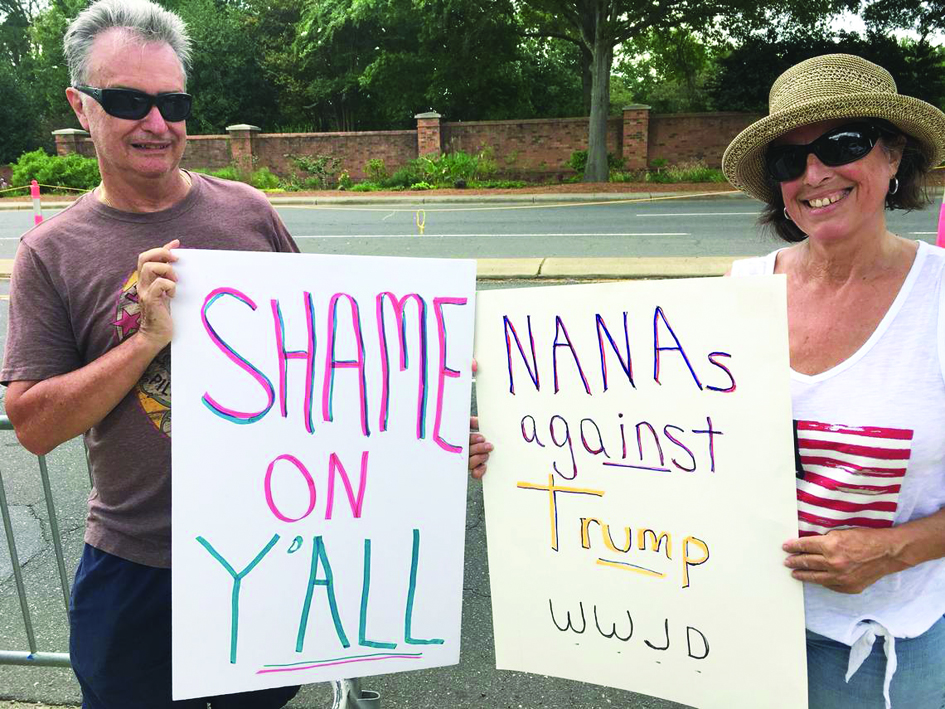 SHAME
ON
Y'ALL
NANAs
against
Trump
WWJD